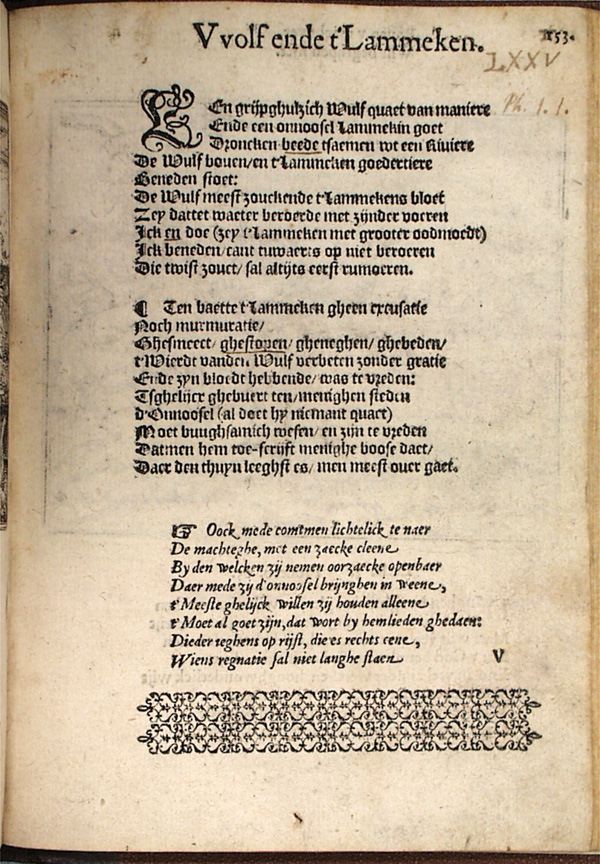 Vvolf ende t'Lammeken.
153.
LXXV
Ph. 1. 1.
Een grijpghulzich Wulf quaet van maniere
Ende een onnoosel Lammekin goet
Droncken beede tsaemen wt een Riviere
De Wulf bouen/ en t'Lammeken goedertiere
Beneden stoet:
De Wulf meest zouckende t'Lammekens bloet
Zey dattet waeter beroerde met zijnder voeren
Ick en doe (zey t'Lammeken met grooter oodmoedt)
Ick beneden/ cant tuwaerts op niet beroeren
Die twist zouct/ sal altijts eerst rumoeren.
¶ Ten baette t'Lammeken gheen excusatie
Noch murmuratie/
Ghesmeect/ ghestopen/ gheneghen/ ghebeden/
t'Wierdt vanden Wulf verbeten zonder gratie
Ende zyn bloedt hebbende/ was te vreden:
Tsghelijcx ghebuert ten/ menighen steden
d'Onnoosel (al doet hy niemant quaet)
Moet buughsamich wesen/ en zijn te vreden
Datmen hem toe-scrijft menighe boose daet/
Daer den thuyn leeghst es/ men meest ouer gaet.
☞ Oock mede comtmen lichtelick te naer
De machteghe, met een zaecke cleene
By den welcken zij nemen oorzaecke openbaer
Daer mede zij d'onnoosel brijnghen in weene,
t'Meeste ghelijck willen zij houden alleene
t'Moet al goet zijn, dat wort by hemlieden ghedaen:
Dieder teghens op rijst, die es rechts eene,
Wiens regnatie sal niet langhe staen
V